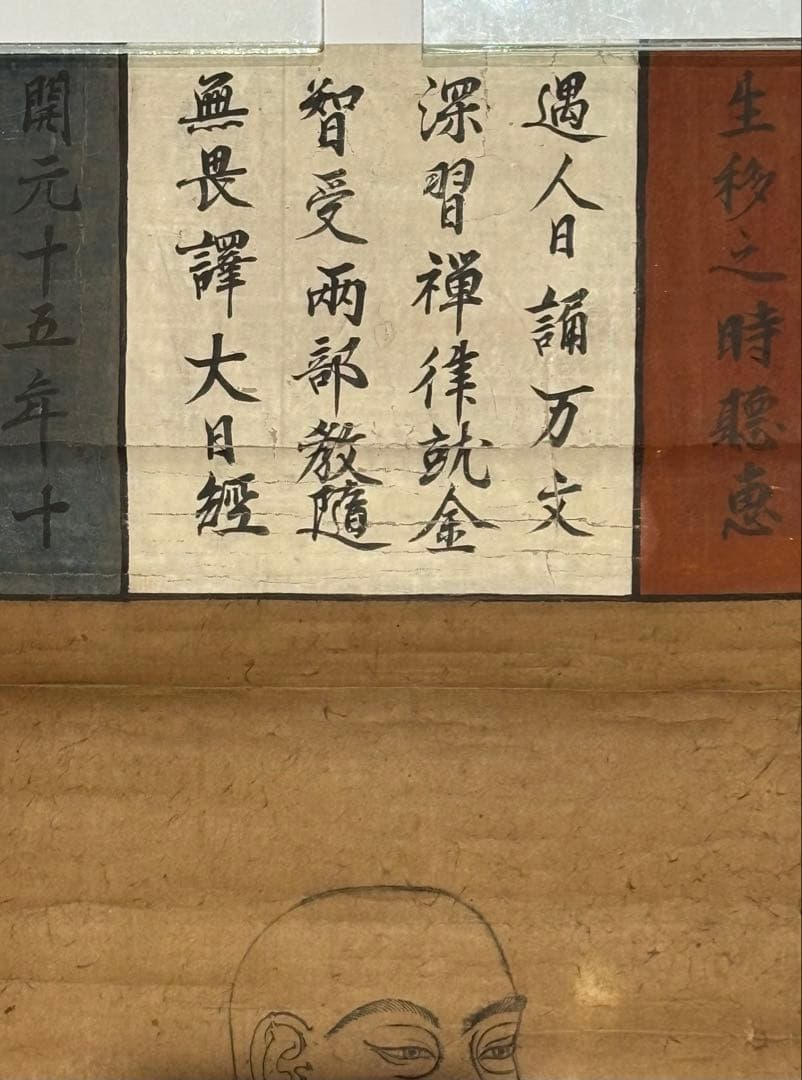 生移之時聽惠
遇人日誦万文
深習禅律就金
智受兩部教隨
無畏譯大日經
開元十五年十